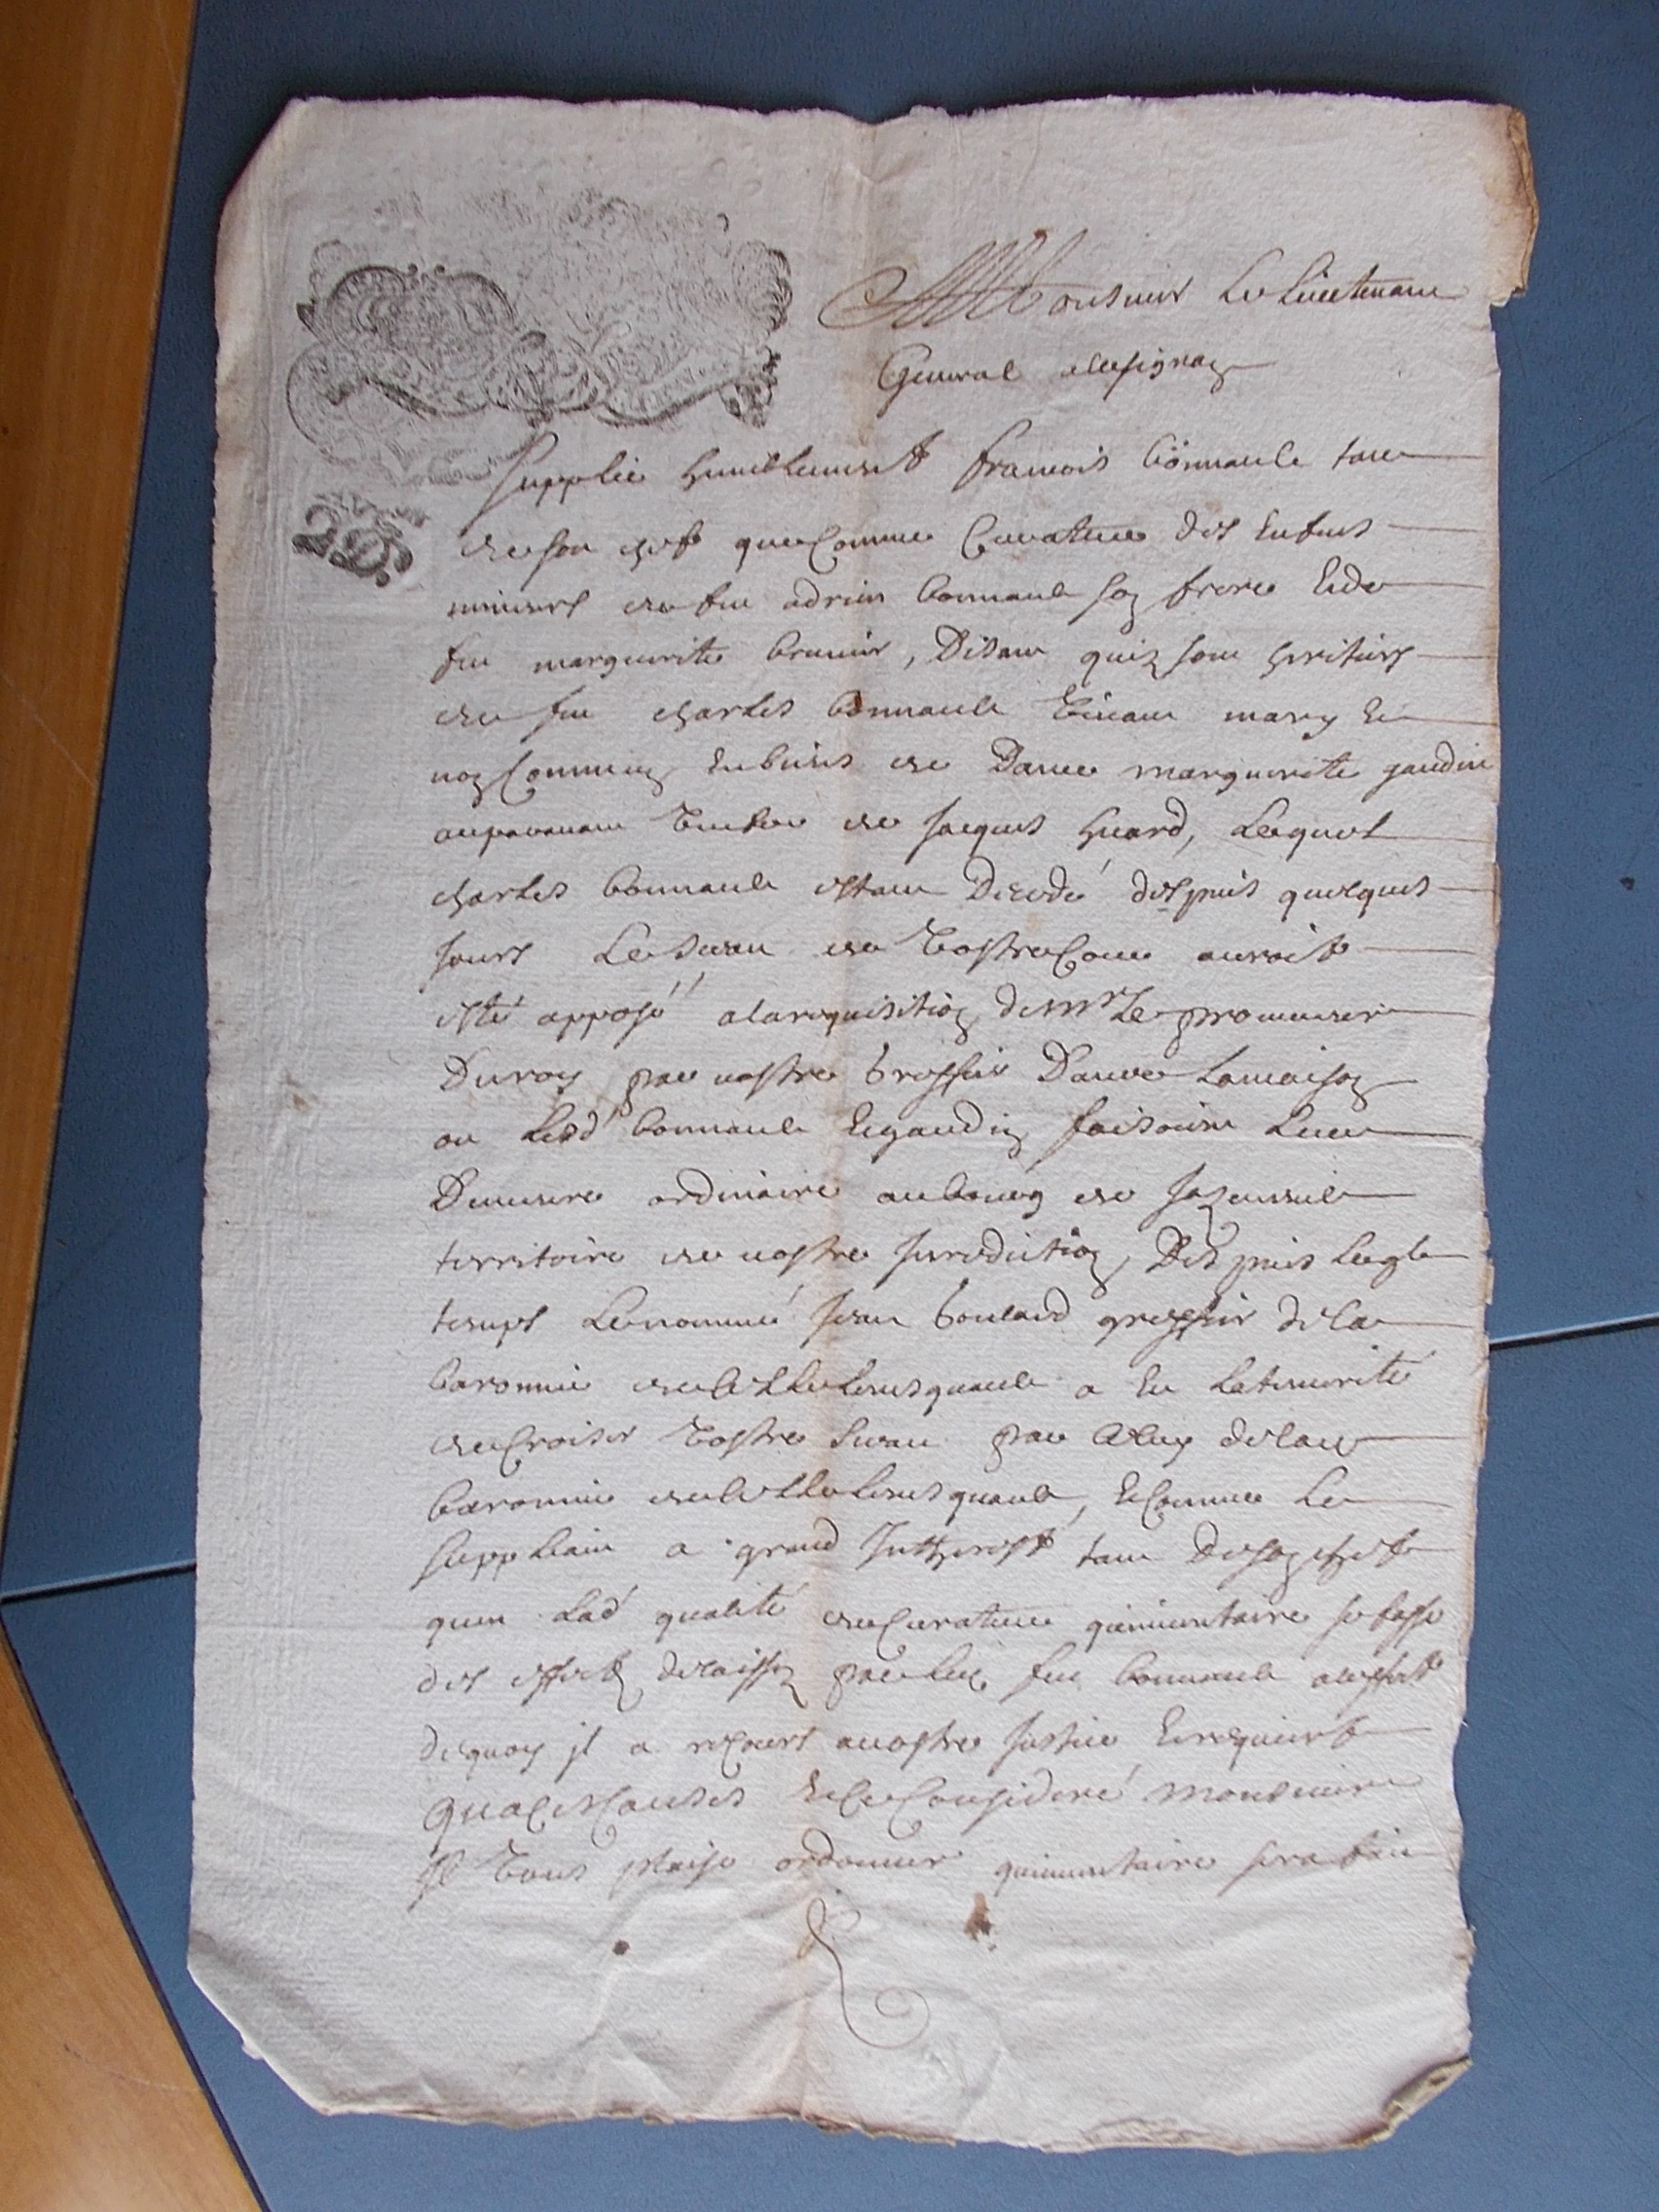 Monsieur Le Lieutenant
General a Lusignan
Supplie humblement francois Bonnault tant
de son chef que Comme Curateur des Enfens
mineurs de feu adrien Bonnault son frere Et de
feu marguerite Brunier, Disant quilz sont heritiers
de feu charles Bonnault vivant mary Et
non Commun En biens de Dame marguerite gaudin
auparavant veufve de Jacques huard, Lequel
charles Bonnault estant Decedé despuis quelques
jours Le Sceau de vostre Cour auroit
esté apposé a la requisition de Mr Le procureur
Du roy par vostre Greffier Dans La maison
ou Lesd Bonnault Et gaudin faisoient Leur
Demeure ordinaire au bourg de Jazeneuil
territoire de vostre Jurediction, Despuis lequel
temps Le nommé Jean Goulard greffier de la
baronnie de Celle Levescault a Eu La temerité
de Croiser vostre Sceau par Celuy de lad
Baronnie de Celle Levesquault, Et Comme Le
suppliant a grand Intherest tant De son chef
quen Lad qualité de Curateur quinventaire se fasse
des effectz delaissez par led feu Bonnault a leffect
de quoy il a recours a vostre Justice Et requiert
qua Ces Causes Et Ce Consideré Monsieur
Il vous plaise ordonner quinventaire sera fait